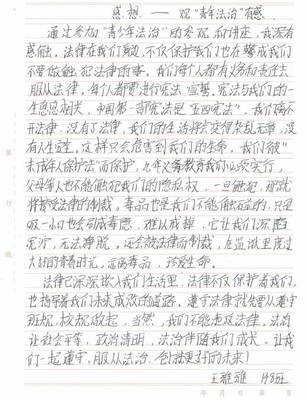 感想——观“青年法治”有感
通过参加“青少年法治”的参观和讲座，我深有
感触，法律在我们身边，不仅保护我们也在警戒我们
不要做触犯法律的事。我们每个人都有义务和责任去
服从法律，每个人都要进行宪法宣誓，宪法与我们的一
生息息相关，中国第一部宪法是“五四宪法”，我们离不
开法律，没有了法律，我们的生活将会变得杂乱无章，没
有人生存，这样只会危害到我们的生命，我们被“
未成年人保护法”而保护，九年义务教育我们必须实行，
父母等人也不能触犯我们的隐私权，一旦触犯，那就
将接受法律的制裁。毒品也是我们不能触碰的，只是
吸一小口也会沉成毒瘾，难以戒掉，它让我们深陷
泥泞，无法挣脱，还会被法律而制裁，在监狱里度过
大好的青春时光。远离毒品，珍爱生命。
法律已深深嵌入我们生活里，法律不仅保护者我们，
也指导着我们未来成功的道路，遵守法律就先要从遵守
班规，校规做起，当然，我们不能违反法律。法治
让社会平等，政治清明，法治伴随我们成长，让我
们一起遵守，服从法治，创造更好的未来！
王雅雅 148班
年 月 日 第 页